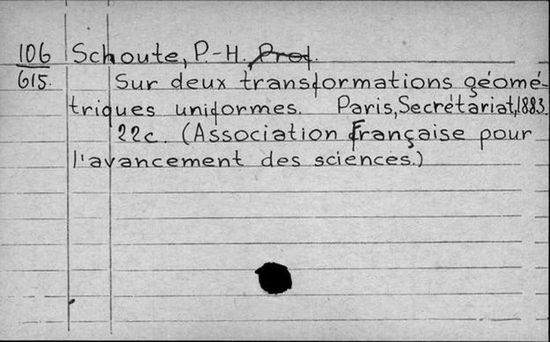 106 Schoute, P-H. Prof.
615. Sur deux transformations géomé-
triques uniformes. Paris, Secrétariat, 1883.
22c. (Association Française pour
l'avancement des sciences.)